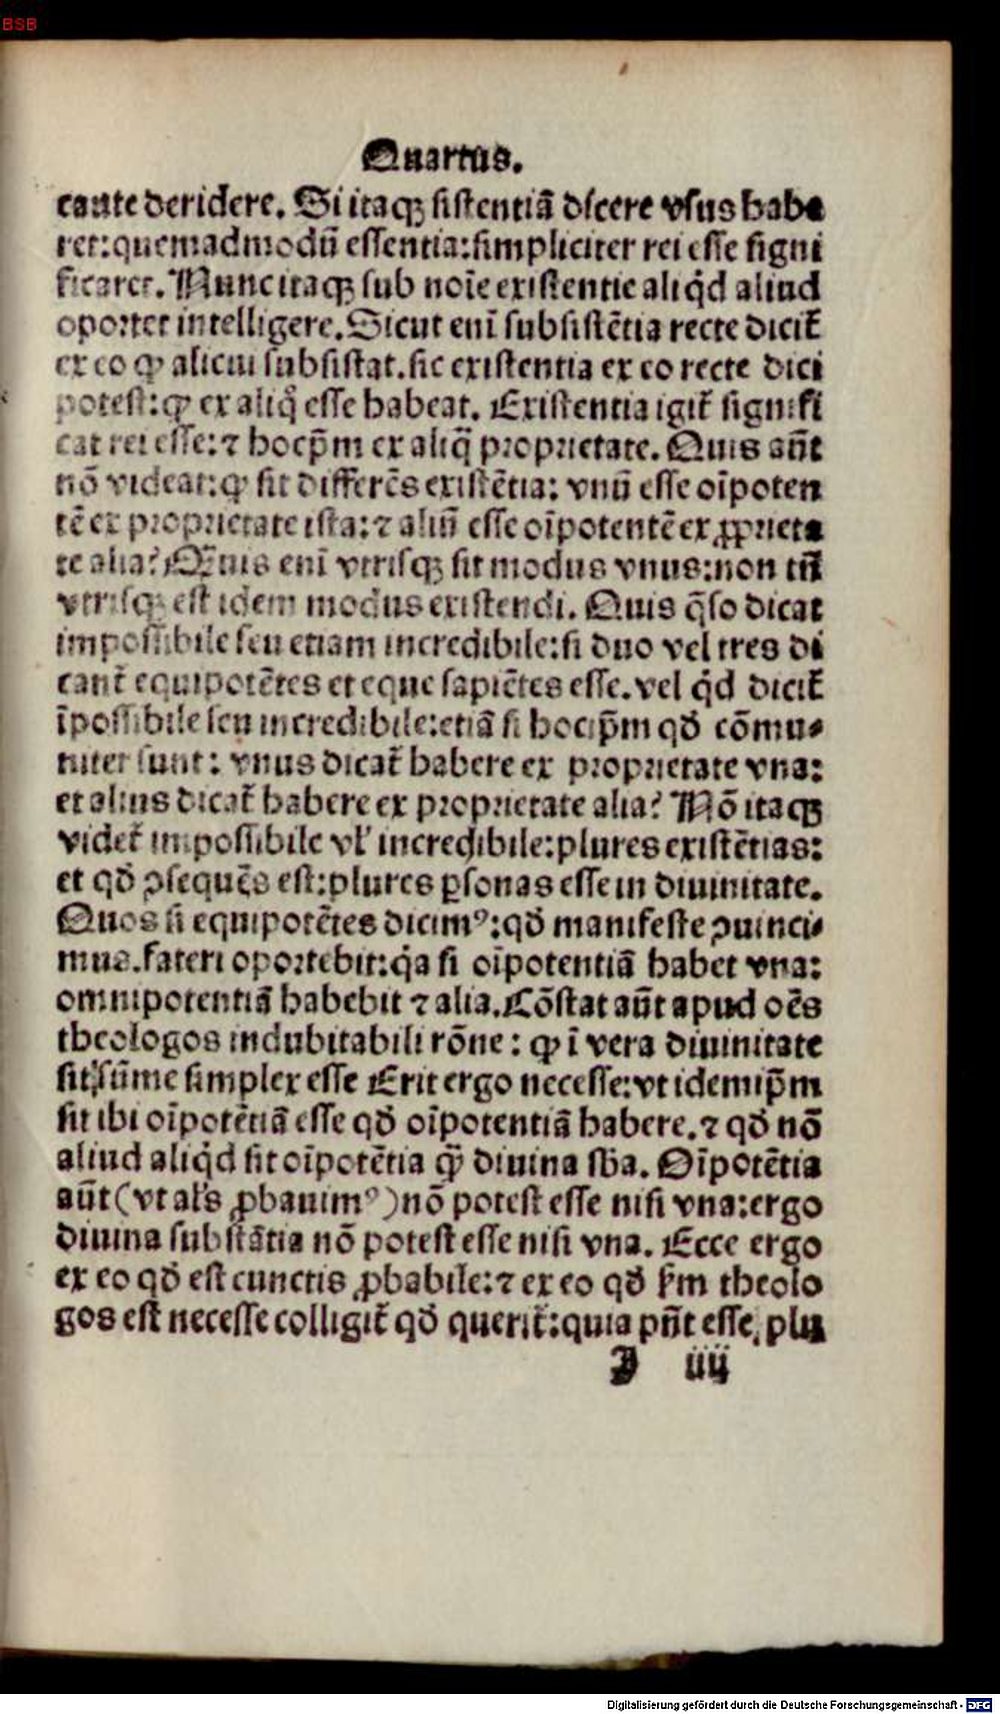 BSB
Quartus.
caute deridere. Si itaqꝫ sistentiã dicere vsus habe
ret:quemadmodũ essentia:simpliciter rei esse signi
ficaret. Nunc itaqꝫ sub noĩe existentie aliq̇d aliud
oportet intelligere. Sicut enĩ subsistẽtia recte dicit̃
ex eo ꝙ alicui subsistat. sic existentia ex eo recte dici
potest:ꝙ ex aliq̃ esse habeat. Existentia igit̃ signifi
cat rei esse:⁊ hocp̃m ex aliq̃ proprietate. Quis aũt
nõ videat:ꝙ sit differẽs existẽtia: vnũ esse oĩpoten
tẽ ex proprietate ista:⁊ aliũ esse oĩpotentẽ ex ꝓprieta
te alia? Q̃uis enĩ vtrisqꝫ sit modus vnus:non tñ
vtrisqꝫ est idem modus existendi. Quis q̃so dicat
impossibile seu etiam incredibile:si duo vel tres di
cant̃ equipotẽtes et eque sapiẽtes esse. vel q̇d dicit̃
ĩpossibile seu incredibile:etiã si hocip̃m qḋ cõmu⸗
niter sunt: vnus dicat̃ habere ex proprietate vna:
et alius dicat̃ habere ex proprietate alia? Nõ itaqꝫ
videt̃ impossibile vl' incredibile:plures existẽtias:
et qḋ ꝯsequẽs est:plures ꝑsonas esse in diuinitate.
Quos si equipotẽtes dicimꝰ:qḋ manifeste ꝯuinci⸗
mus. fateri oportebit:q̇a si oĩpotentiã habet vna:
omnipotentiã habebit ⁊ alia. Cõstat aũt apud oẽs
theologos indubitabili rõne: ꝙ ĩ vera diuinitate
sit sũme simplex esse Erit ergo necesse:vt idemip̃m
sit ibi oĩpotẽtiã esse qḋ oĩpotentiã habere. ⁊ qḋ nõ
aliud aliq̇d sit oĩpotẽtia q̃ȝ diuina sb̃a. Oĩpotẽtia
aũt (vt al's ꝓbauimꝰ) nõ potest esse nisi vna:ergo
diuina substãtia nõ potest esse nisi vna. Ecce ergo
ex eo qḋ est cunctis ꝓbabile:⁊ ex eo qḋ ẜm theolo
gos est necesse colligit̃ qḋ querit̃:quia pñt esse plu
J iiij
Digitalisierung gefördert durch die Deutsche Forschungsgemeinschaft - DFG